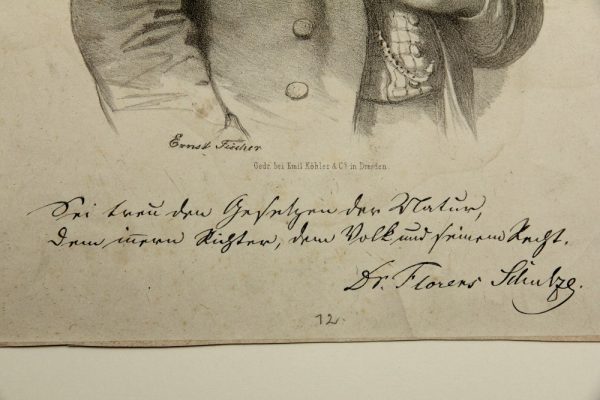 Ernst Fischer
Gedr. bei Emil Köhler & Co. in Dresden.
Sei treu den Gesetzen der Natur,
Dem innern Richter, dem Volk und seinem Recht.
Dr. Florens Schulze.
12.